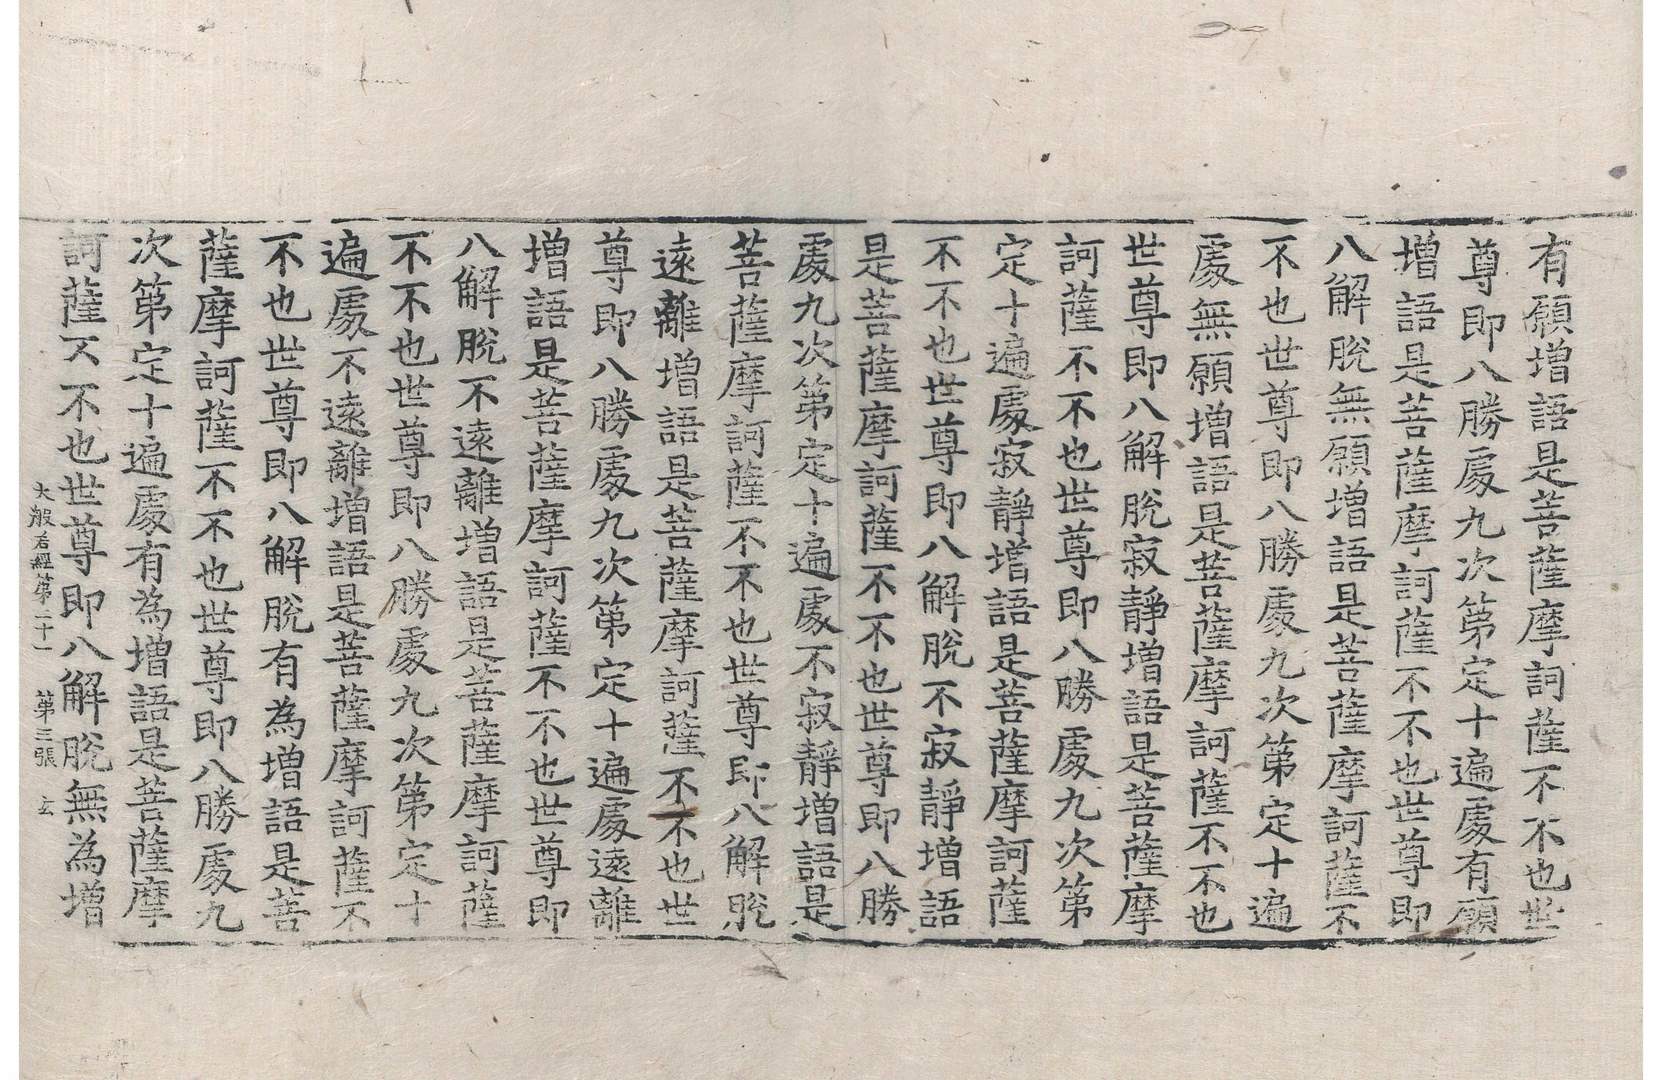 有願增語是菩薩摩訶薩不不也世
尊即八勝處九次第定十遍處有願
增語是菩薩摩訶薩不不也世尊即
八解脫無願增語是菩薩摩訶薩不
不也世尊即八勝處九次第定十遍
處無願增語是菩薩摩訶薩不不也
世尊即八解脫寂靜增語是菩薩摩
訶薩不不也世尊即八勝處九次第
定十遍處寂靜增語是菩薩摩訶薩
不不也世尊即八解脫不寂靜增語
是菩薩摩訶薩不不也世尊即八勝
處九次第定十遍處不寂靜增語是
菩薩摩訶薩不不也世尊即八解脫
遠離增語是菩薩摩訶薩不不也世
尊即八勝處九次第定十遍處遠離
增語是菩薩摩訶薩不不也世尊即
八解脫不遠離增語是菩薩摩訶薩
不不也世尊即八勝處九次第定十
遍處不遠離增語是菩薩摩訶薩不
不也世尊即八解脫有為增語是菩
薩摩訶薩不不也世尊即八勝處九
次第定十遍處有為增語是菩薩摩
訶薩不不也世尊即八解脫無為增
大般若經第二十一 第三張 玄